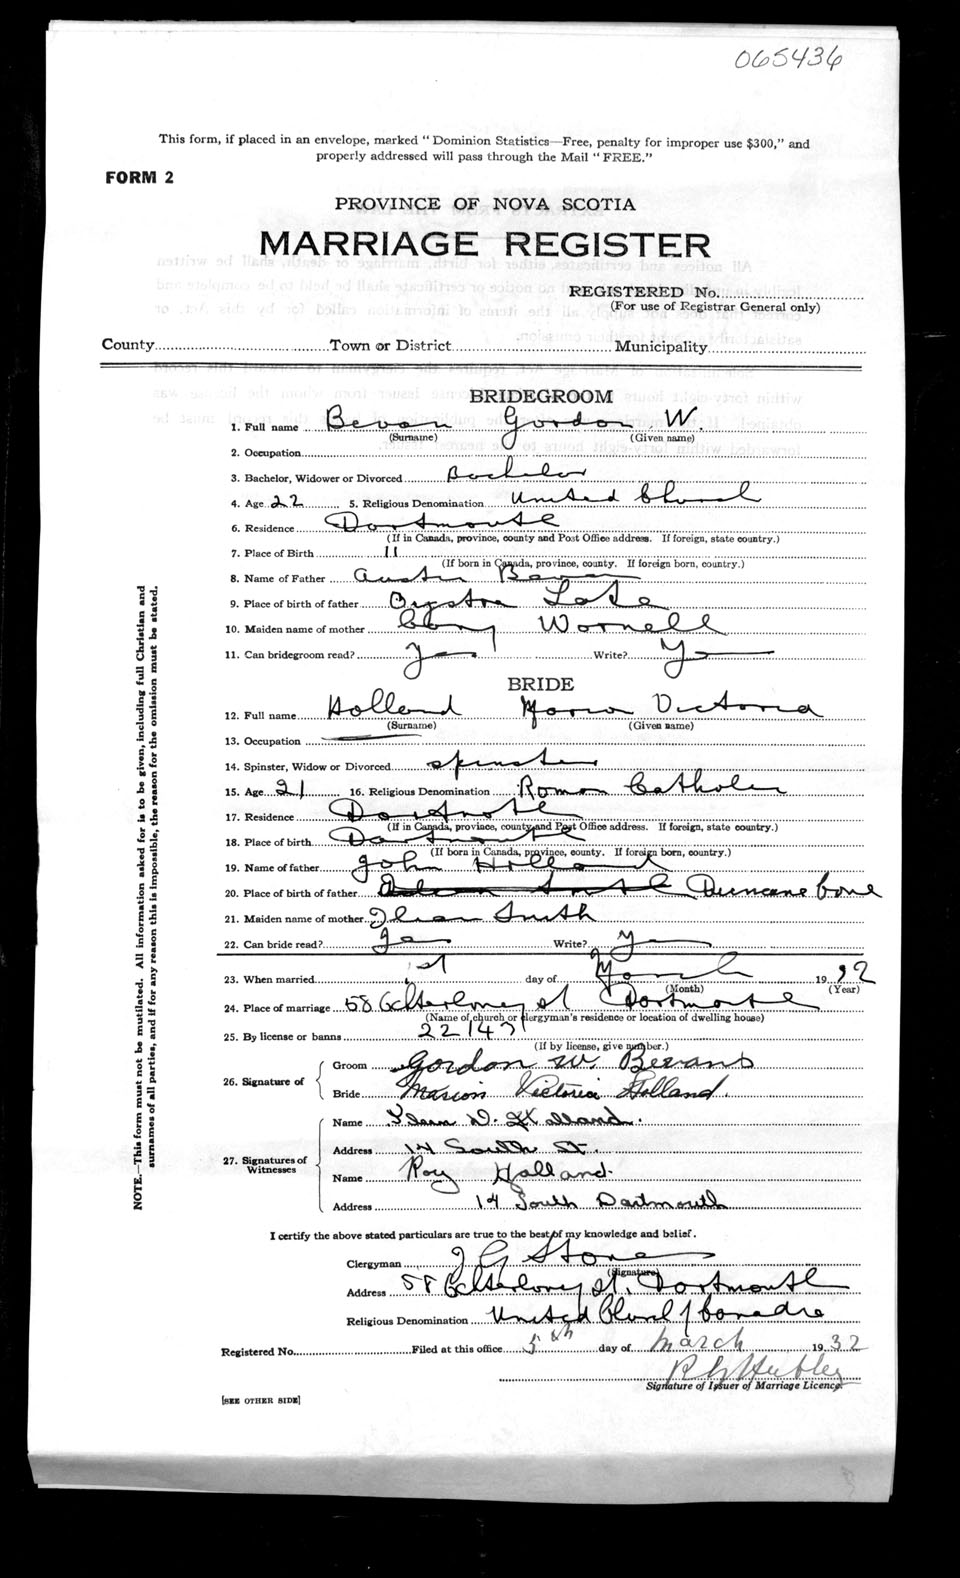 065436
This form, if placed in an envelope, marked "Dominion Statistics—Free, penalty for improper use $300," and
properly addressed will pass through the Mail "FREE."
FORM 2
PROVINCE OF NOVA SCOTIA
MARRIAGE REGISTER
REGISTERED No.
(For use of Registrar General only)
County Town or District Municipality
BRIDEGROOM
1. Full name Bevan Gordon W.
(Surname) (Given name)
2. Occupation
3. Bachelor, Widower or Divorced Bachelor
4. Age 22 5. Religious Denomination United Church
6. Residence Dartmouth
(If in Canada, province, county and Post Office address. If foreign, state country.)
7. Place of Birth "
(If born in Canada, province, county. If foreign born, country.)
8. Name of Father Austin Bevan
9. Place of birth of father
10. Maiden name of mother Wornell
11. Can bridegroom read? Yes Write? Yes
BRIDE
12. Full name Holland Marion Victoria
(Surname) (Given name)
13. Occupation
14. Spinster, Widow or Divorced spinster
15. Age 21 16. Religious Denomination Roman Catholic
17. Residence Dartmouth
(If in Canada, province, county and Post Office address. If foreign, state country.)
18. Place of birth Dartmouth
(If born in Canada, province, county. If foreign born, country.)
19. Name of father John Holland
20. Place of birth of father Duncans Cove
21. Maiden name of mother Smith
22. Can bride read? Yes Write? Yes
23. When married 1st day of March 1932
(Month) (Year)
24. Place of marriage 58 st Dartmouth
(Name of church or clergyman's residence or location of dwelling house)
25. By license or banns
(If by license, give number.)
26. Signature of
Groom Gordon W. Bevans
Bride Marion Victoria Holland.
27. Signatures of Witnesses
Name D. Holland.
Address 14 South St.
Name Roy Holland.
Address 14 South Dartmouth
I certify the above stated particulars are true to the best of my knowledge and belief.
Clergyman J G Stones
(Signature)
Address 58 st. Dartmouth
Religious Denomination United Church of Canada
Registered No. Filed at this office 5th day of March 1932
Signature of Issuer of Marriage Licence.
[SEE OTHER SIDE]
NOTE.—This form must not be mutilated. All information asked for is to be given, including full Christian and
surnames of all parties, and if for any reason this is impossible, the reason for the omission must be stated.